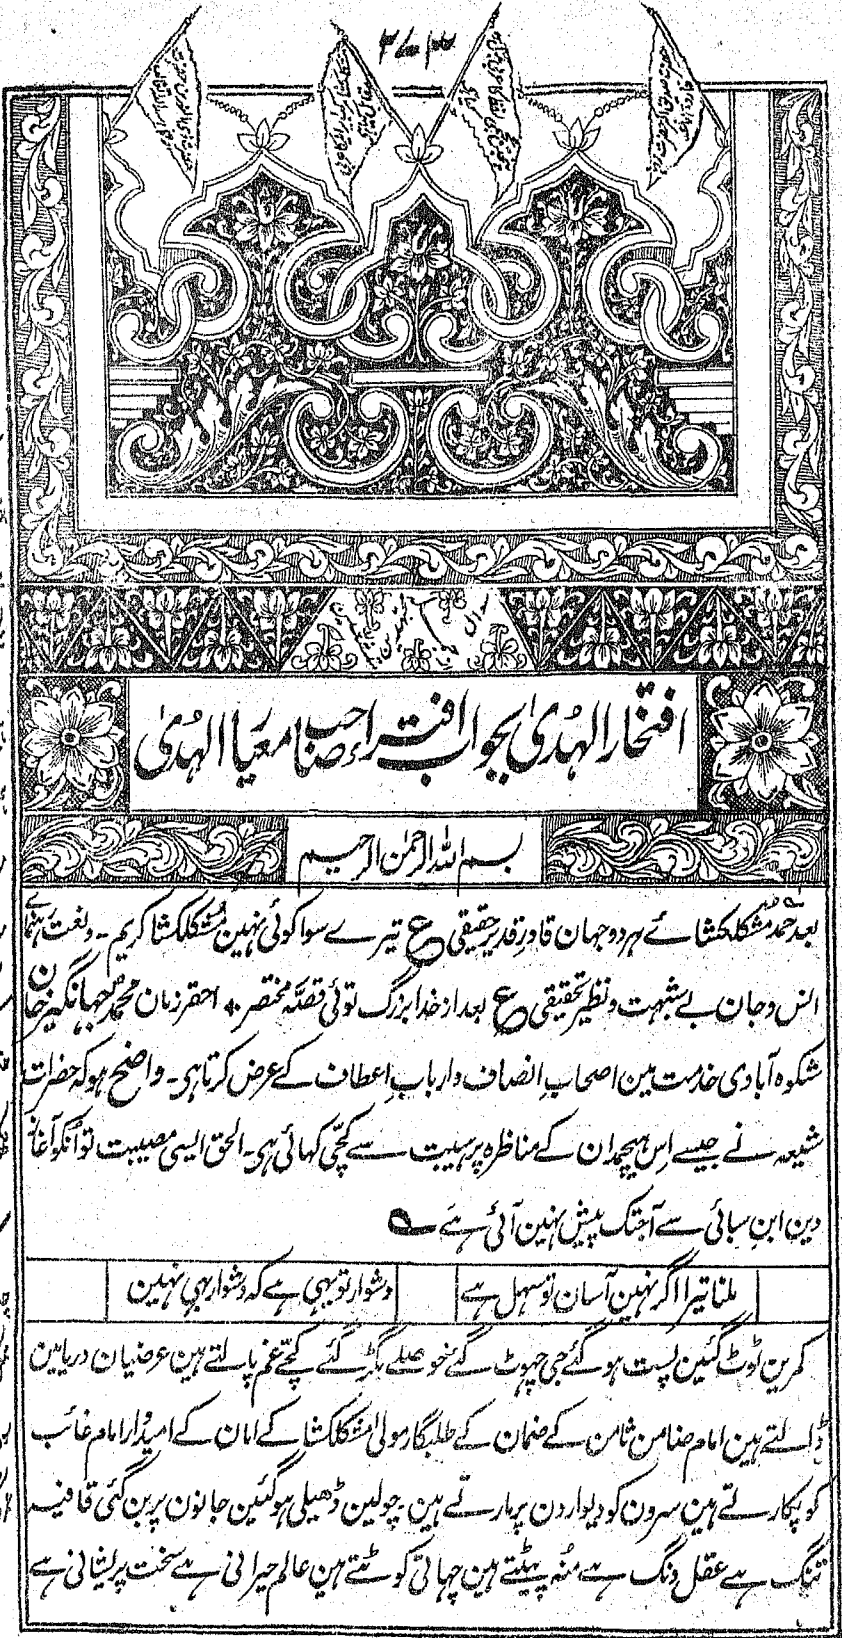 ۲۷۳
افتخار الہُدیٰ بجواب افتراء صاحب معیار الہُدیٰ
بسم اللہ الرحمٰن الرحیم
بعد حمد مشکلکشائے ہر دو جہان قادرِ قدیرِ حقیقی ع تیرے سوا کوئی نہین مُشکلکشا کریم۔ ونعت رہنمائے
انس و جان بے شبہت و نظیر تحقیقی ع بعد از خدا بزرگ توئی قصّہ مختصر ٭ احقر زمان محمد جہانگیر خان
شکوہ آبادی خدمت مین اصحابِ انصاف و اربابِ اعطاف کے عرض کرتا ہی۔ واضح ہو کہ حضرات
شیعہ نے جیسے اِس ہیچمدان کے مناظرہ پر ہیبت سے کچّی کہائی ہی۔ الحق ایسی مصیبت تو اُنکو آغاز
دین ابن سبائی سے آجتک پیش نہین آئی ہے ؎
ملنا تیرا اگر نہین آسان تو سہل ہے دشوار تو یہی ہے کہ دشوار بہی نہین
کمرین ٹوٹ گئین پست ہو گئے جی چہوٹ گئے حوصلے بگڑ گئے کچّے غم پالتے ہین عرضیان دریا مین
ڈالتے ہین امام ضامن ثامن کے ضمان کے طلبگار مولیٰ مشکلکشا کے امان کے امیدوار امام غائب
کو پکارتے ہین سرون کو دیوارون پر مارتے ہین چولین ڈھیلی ہو گئین جانون پر بن گئی قافیہ
تنگ ہے عقل دنگ ہے مُنہ پیٹتے ہین چہاتی کوٹتے ہین عالم حیرانی ہے سخت پریشانی ہے